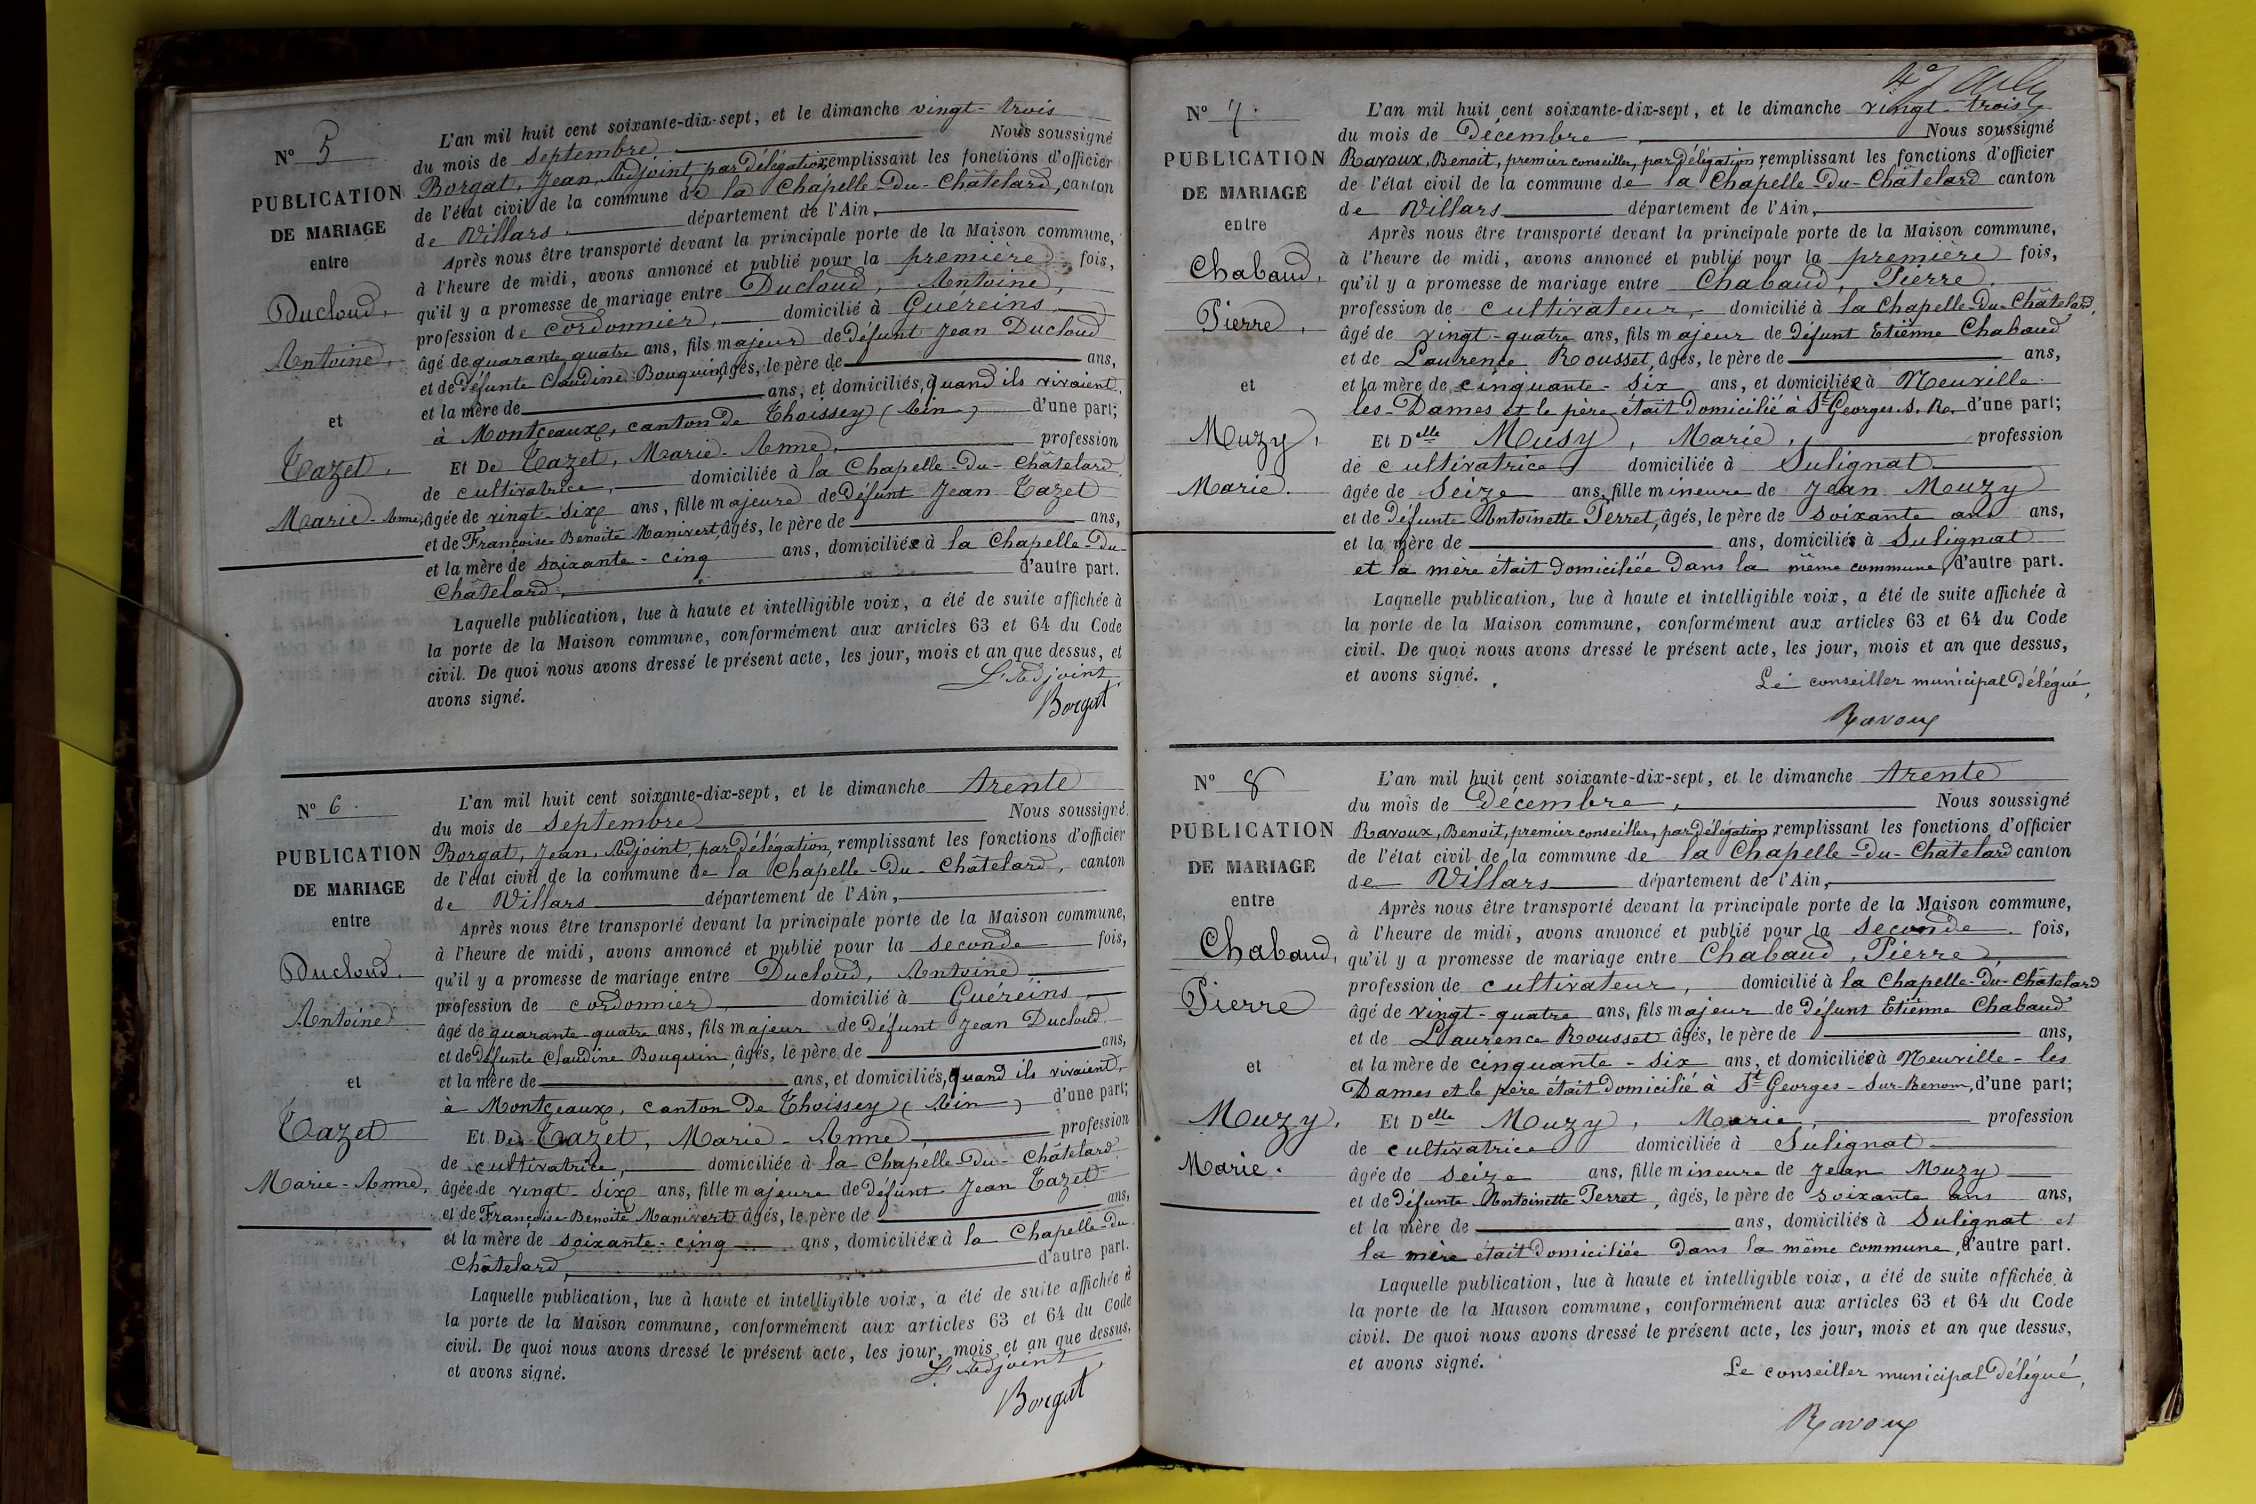 N° 5
PUBLICATION
DE MARIAGE
entre
Ducloud,
Antoine,
et
Tazet,
Marie-Anne,
L'an mil huit cent soixante-dix-sept, et le dimanche vingt-trois
du mois de Septembre Nous soussigné
Borgat, Jean, Adjoint, par Délégation, remplissant les fonctions d'officier
de l'état civil de la commune de la Chapelle-Du-Châtelard, canton
de Villars département de l'Ain,
Après nous être transporté devant la principale porte de la Maison commune,
à l'heure de midi, avons annoncé et publié pour la première fois,
qu'il y a promesse de mariage entre Ducloud, Antoine,
profession de cordonnier, domicilié à Guéreins
âgé de quarante quatre ans, fils majeur de Défunt Jean Ducloud
et de Défunte Claudine Bouquin, âgés, le père de ans,
et la mère de ans, et domiciliés, quand ils vivaient,
à Montceaux, canton de Thoissey (Ain) d'une part;
Et De Tazet, Marie-Anne, profession
de cultivatrice, domiciliée à la Chapelle-Du-Châtelard,
âgée de vingt-six ans, fille majeure de Défunt Jean Tazet
et de Françoise Benoite Manivert, âgés, le père de ans,
et la mère de soixante-cinq ans, domiciliée à la Chapelle-Du-
Châtelard, d'autre part.
Laquelle publication, lue à haute et intelligible voix, a été de suite affichée à
la porte de la Maison commune, conformément aux articles 63 et 64 du Code
civil. De quoi nous avons dressé le présent acte, les jour, mois et an que dessus, et
avons signé.
L'Adjoint,
Borgat
N° 6
PUBLICATION
DE MARIAGE
entre
Ducloud.
Antoine
et
Tazet
Marie-Anne,
L'an mil huit cent soixante-dix-sept, et le dimanche trente
du mois de Septembre Nous soussigné
Borgat, Jean, Adjoint, par Délégation, remplissant les fonctions d'officier
de l'état civil de la commune de la Chapelle-Du-Châtelard, canton
de Villars département de l'Ain,
Après nous être transporté devant la principale porte de la Maison commune,
à l'heure de midi, avons annoncé et publié pour la seconde fois,
qu'il y a promesse de mariage entre Ducloud, Antoine
profession de cordonnier, domicilié à Guéreins
âgé de quarante-quatre ans, fils majeur de Défunt Jean Ducloud
et de Défunte Claudine Bouquin, âgés, le père de ans,
et la mère de ans, et domiciliés, quand ils vivaient,
à Montceaux, canton De Thoissey (Ain) d'une part;
Et De Tazet, Marie-Anne, profession
de cultivatrice, domiciliée à la Chapelle-Du-Châtelard,
âgée de vingt-six ans, fille majeure de Défunt Jean Tazet
et de Françoise Benoite Manivert, âgés, le père de ans,
et la mère de soixante-cinq ans, domiciliée à la Chapelle-Du
Châtelard, d'autre part.
Laquelle publication, lue à haute et intelligible voix, a été de suite affichée à
la porte de la Maison commune, conformément aux articles 63 et 64 du Code
civil. De quoi nous avons dressé le présent acte, les jour, mois et an que dessus,
et avons signé.
L'Adjoint,
Borgat
N° 7.
PUBLICATION
DE MARIAGE
entre
Chabaud,
Pierre,
et
Muzy,
Marie.
L'an mil huit cent soixante-dix-sept, et le dimanche vingt-trois
du mois de Décembre, Nous soussigné
Ravoux, Benoit, premier conseiller, par Délégation, remplissant les fonctions d'officier
de l'état civil de la commune de la Chapelle-Du-Châtelard canton
de Villars département de l'Ain,
Après nous être transporté devant la principale porte de la Maison commune,
à l'heure de midi, avons annoncé et publié pour la première fois,
qu'il y a promesse de mariage entre Chabaud, Pierre,
profession de cultivateur, domicilié à la Chapelle-Du-Châtelard,
âgé de vingt-quatre ans, fils majeur de Défunt Etienne Chabaud
et de Laurence Rousset, âgés, le père de ans,
et la mère de cinquante-six ans, et domiciliée à Neuville-
les-Dames et le père était Domicilié à St Georges. S. R. d'une part;
Et Delle Musy, Marie, profession
de cultivatrice domiciliée à Sulignat
âgée de Seize ans, fille mineure de Jean Muzy
et de Défunte Antoinette Perret, âgés, le père de soixante ans ans,
et la mère de ans, domiciliés à Sulignat
et la mère était Domiciliée Dans la même commune, d'autre part.
Laquelle publication, lue à haute et intelligible voix, a été de suite affichée à
la porte de la Maison commune, conformément aux articles 63 et 64 du Code
civil. De quoi nous avons dressé le présent acte, les jour, mois et an que dessus,
et avons signé.
Le conseiller municipal Délégué,
Ravoux
N° 8
PUBLICATION
DE MARIAGE
entre
Chabaud,
Pierre
et
Muzy,
Marie.
L'an mil huit cent soixante-dix-sept, et le dimanche trente
du mois de Décembre, Nous soussigné
Ravoux, Benoit, premier conseiller, par délégation, remplissant les fonctions d'officier
de l'état civil de la commune de la Chapelle-Du-Châtelard canton
de Villars département de l'Ain,
Après nous être transporté devant la principale porte de la Maison commune,
à l'heure de midi, avons annoncé et publié pour la seconde fois,
qu'il y a promesse de mariage entre Chabaud, Pierre,
profession de cultivateur, domicilié à la Chapelle-Du-Châtelard
âgé de vingt-quatre ans, fils majeur de Défunt Etienne Chabaud
et de Laurence Rousset âgés, le père de ans,
et la mère de cinquante-six ans, et domiciliée à Neuville-les
Dames et le père était Domicilié à St Georges-Sur-Renom, d'une part;
Et Delle Muzy, Marie, profession
de cultivatrice domiciliée à Sulignat
âgée de Seize ans, fille mineure de Jean Muzy
et de Défunte Antoinette Perret, âgés, le père de soixante ans ans,
et la mère de ans, domiciliés à Sulignat et
la mère était Domiciliée Dans la même commune, d'autre part.
Laquelle publication, lue à haute et intelligible voix, a été de suite affichée à
la porte de la Maison commune, conformément aux articles 63 et 64 du Code
civil. De quoi nous avons dressé le présent acte, les jour, mois et an que dessus,
et avons signé.
Le conseiller municipal Délégué,
Ravoux